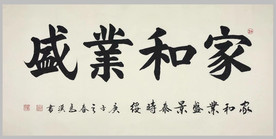 家和業盛
家和業盛景泰時綏 之春志漢書